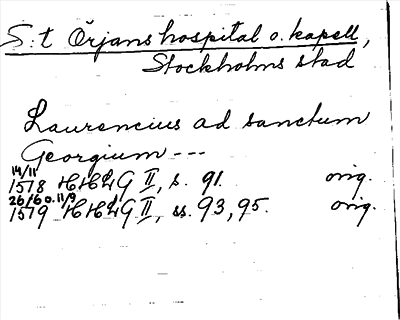 S:t Örjans hospital o. kapell,
Stockholms stad
Laurencius ad sanctum
Georgium ---
14/11
1518 HHLG II, s. 91. orig.
26/6 o. 11/9
1519 HHLG II, ss. 93, 95. orig.